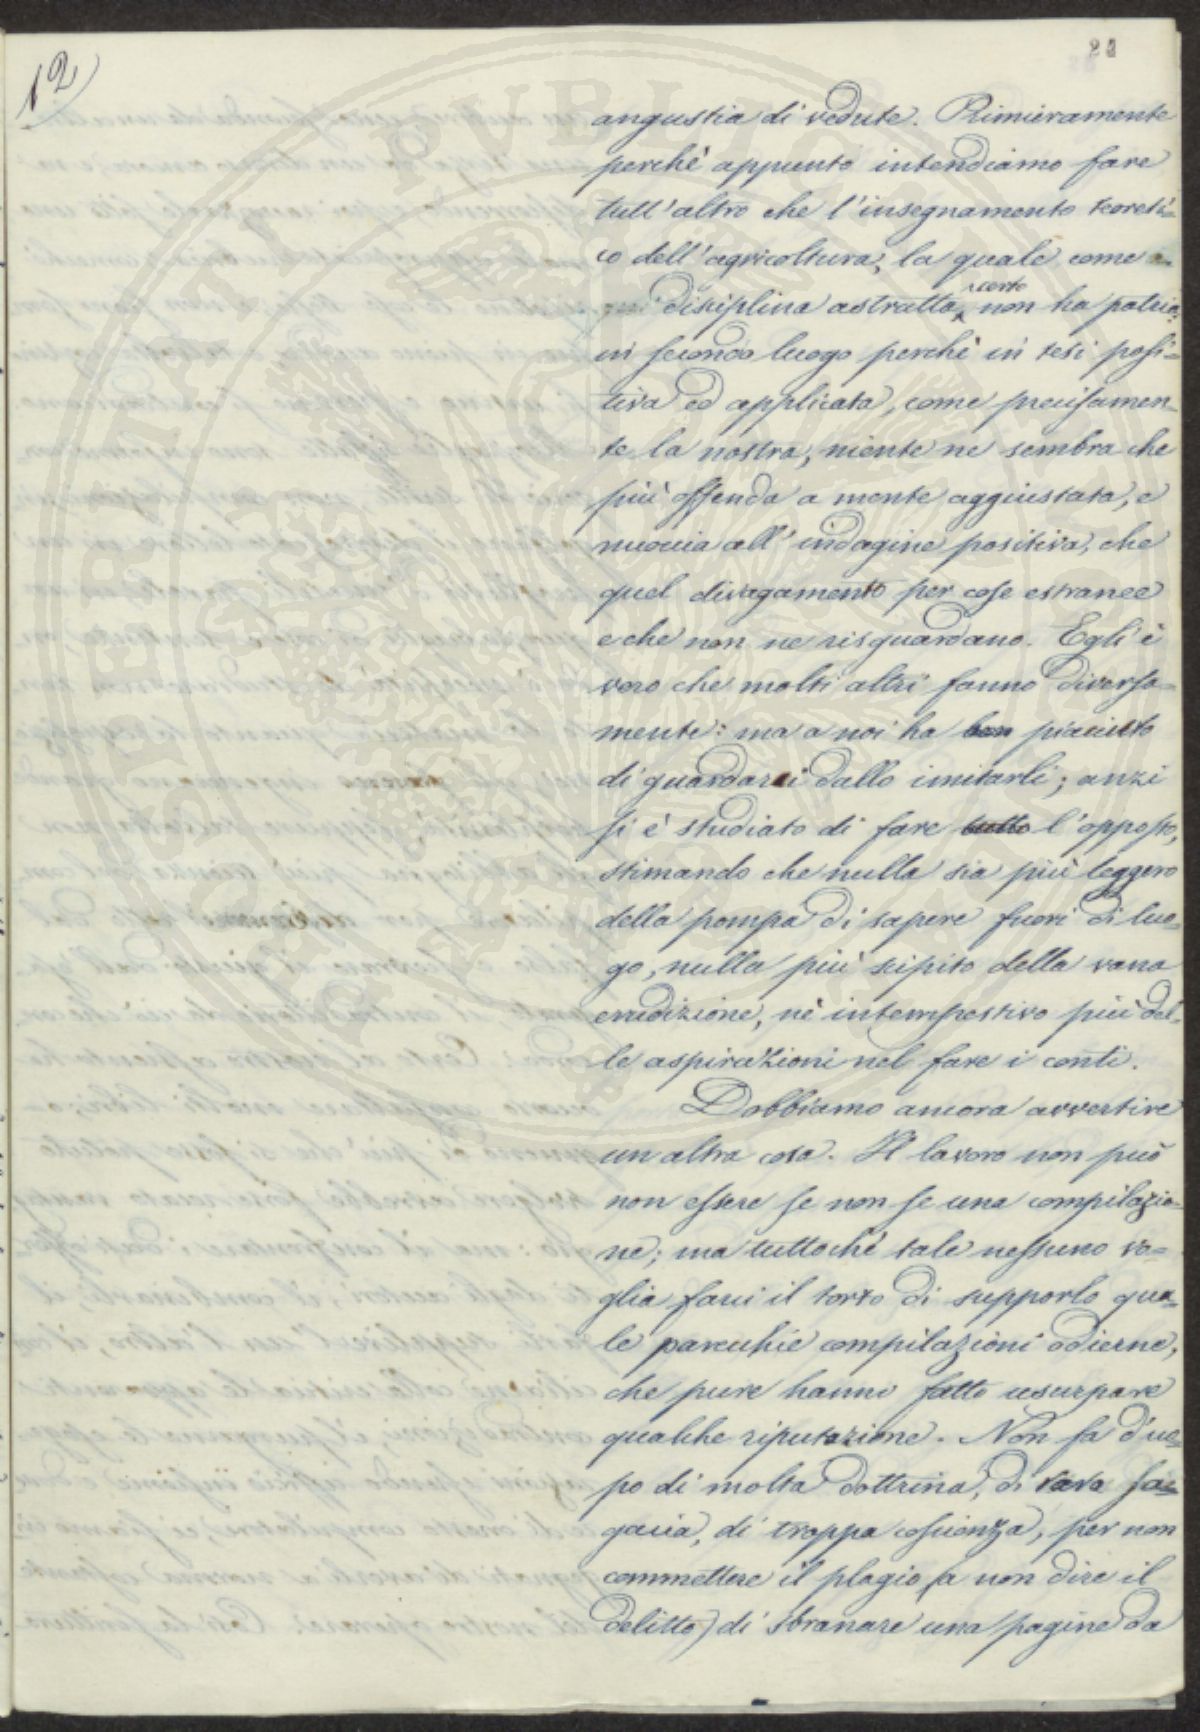 12
21
angustia di vedute. Rimieramente
perchè appunto intendiamo fare
tutt'altro che l'insegnamento teoreti-
co dell'agricoltura, la quale come
disciplina astratta, certo non ha patria;
in secondo luogo perchè in tesi posi-
tiva ed applicata, come precisamen-
te la nostra, niente ne sembra che
più offenda a mente aggiustata, e
nuocia all'indagine positiva, che
quel divagamento per cose estranee
e che non ne risguardano. Egli è
vero che molti altri fanno diversa-
mente: ma a noi ha ben piaciuto
di guardarci dallo imitarli; anzi
si è studiato di fare tutto l'opposto,
stimando che nulla sia più leggero
della pompa di sapere fuori di luo-
go, nulla più scipito della vana
erudizione, nè intempestivo più del-
le aspirazioni nel fare i conti.
Dobbiamo ancora avvertire
un altra cosa. Il lavoro non può
non essere se non se una compilazio-
ne; ma tuttochè tale nessuno vo-
glia farci il torto di supporlo qua-
le parecchie compilazioni odierne,
che pure hanno fatto usurpare
qualche riputazione. Non fa d'uo-
po di molta dottrina, di rara sa-
gacia, di troppa coscienza, per non
commettere il plagio (a non dire il
delitto) di sbranare una pagine da
PVBLICE